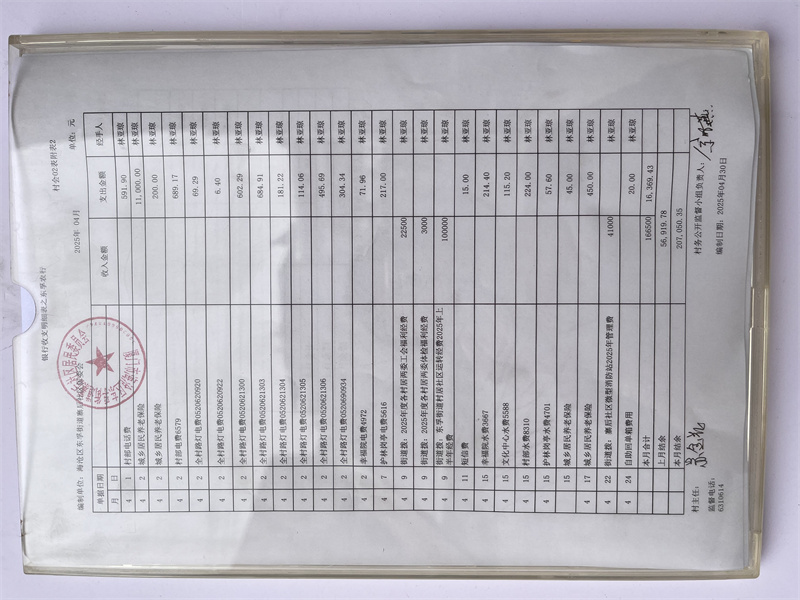 村会02表附表2
银行收支明细表之东孚农行
编制单位：海沧区东孚街道寨后社区居委会 2025年 04月 单位：元
单据日期 收入金额 支出金额 经手人
月 日
4 1 村部电话费 591.90 林亚琼
4 2 城乡居民养老保险 11,000.00 林亚琼
4 2 城乡居民养老保险 200.00 林亚琼
4 2 村部电费6579 689.17 林亚琼
4 2 全村路灯电费0520620920 69.29 林亚琼
4 2 全村路灯电费0520620922 6.40 林亚琼
4 2 全村路灯电费0520621300 602.29 林亚琼
4 2 全村路灯电费0520621303 684.91 林亚琼
4 2 全村路灯电费0520621304 181.22 林亚琼
4 2 全村路灯电费0520621305 114.06 林亚琼
4 2 全村路灯电费0520621306 495.69 林亚琼
4 2 全村路灯电费0520690934 304.34 林亚琼
4 2 幸福院电费4972 71.96 林亚琼
4 7 护林岗亭电费5616 217.00 林亚琼
4 9 街道拨：2025年度各村居两委工会福利经费 22500 林亚琼
4 9 街道拨：2025年度各村居两委体检福利经费 3000 林亚琼
4 9 街道拨：东孚街道村居社区运转经费2025年上半年经费 100000 林亚琼
4 11 短信费 15.00 林亚琼
4 15 幸福院水费3667 214.40 林亚琼
4 15 文化中心水费5588 115.20 林亚琼
4 15 村部水费8310 224.00 林亚琼
4 15 护林岗亭水费4701 57.60 林亚琼
4 15 城乡居民养老保险 45.00 林亚琼
4 17 城乡居民养老保险 450.00 林亚琼
4 22 街道拨：寨后社区微型消防站2025年管理费 41000 林亚琼
4 24 自助回单箱费用 20.00 林亚琼
本月合计 166500 16,369.43
上月结余 56,919.78
本月结余 207,050.35
村主任： 村务公开监督小组负责人：
监督电话：6310614 编制日期：2025年04月30日